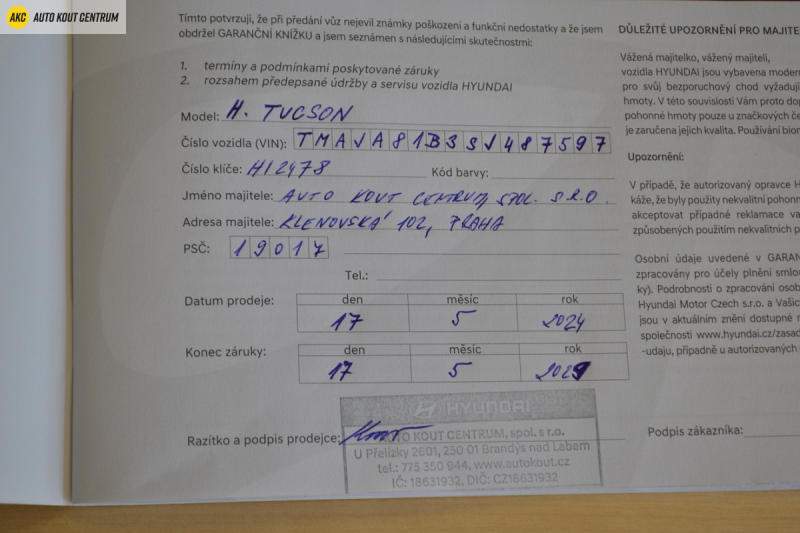 AKC AUTO KOUT CENTRUM
Tímto potvrzuji, že při předání vůz nejevil známky poškození a funkční nedostatky a že jsem
obdržel GARANČNÍ KNÍŽKU a jsem seznámen s následujícími skutečnostmi:
1. termíny a podmínkami poskytované záruky
2. rozsahem předepsané údržby a servisu vozidla HYUNDAI
Model: H. TUCSON
Číslo vozidla (VIN): TMAJA81B3SJ487597
Číslo klíče: H12478 Kód barvy:
Jméno majitele: AUTO KOUT CENTRUM, SPOL. S R.O.
Adresa majitele: KLENOVSKÁ 102, PRAHA
PSČ: 19017
Tel.:
Datum prodeje: den měsíc rok
17 5 2024
Konec záruky: den měsíc rok
17 5 2029
Razítko a podpis prodejce:
HYUNDAI
AUTO KOUT CENTRUM, spol. s r.o.
U Přelízky 2601, 250 01 Brandýs nad Labem
tel.: 775 350 944, www.autokout.cz
IČ: 18631932, DIČ: CZ18631932
Podpis zákazníka:
DŮLEŽITÉ UPOZORNĚNÍ PRO MAJITE
Vážená majitelko, vážený majiteli,
vozidla HYUNDAI jsou vybavena modern
pro svůj bezporuchový chod vyžadují
hmoty. V této souvislosti Vám proto dop
pohonné hmoty pouze u značkových če
je zaručena jejich kvalita. Používání bion
Upozornění:
V případě, že autorizovaný opravce H
káže, že byly použity nekvalitní pohonn
akceptovat případné reklamace va
způsobených použitím nekvalitních p
Osobní údaje uvedené v GARAN
zpracovány pro účely plnění smlou
ky). Podrobnosti o zpracování osob
Hyundai Motor Czech s.r.o. a Vašic
jsou v aktuálním znění dostupné n
společnosti www.hyundai.cz/zasad
-udaju, případně u autorizovaných